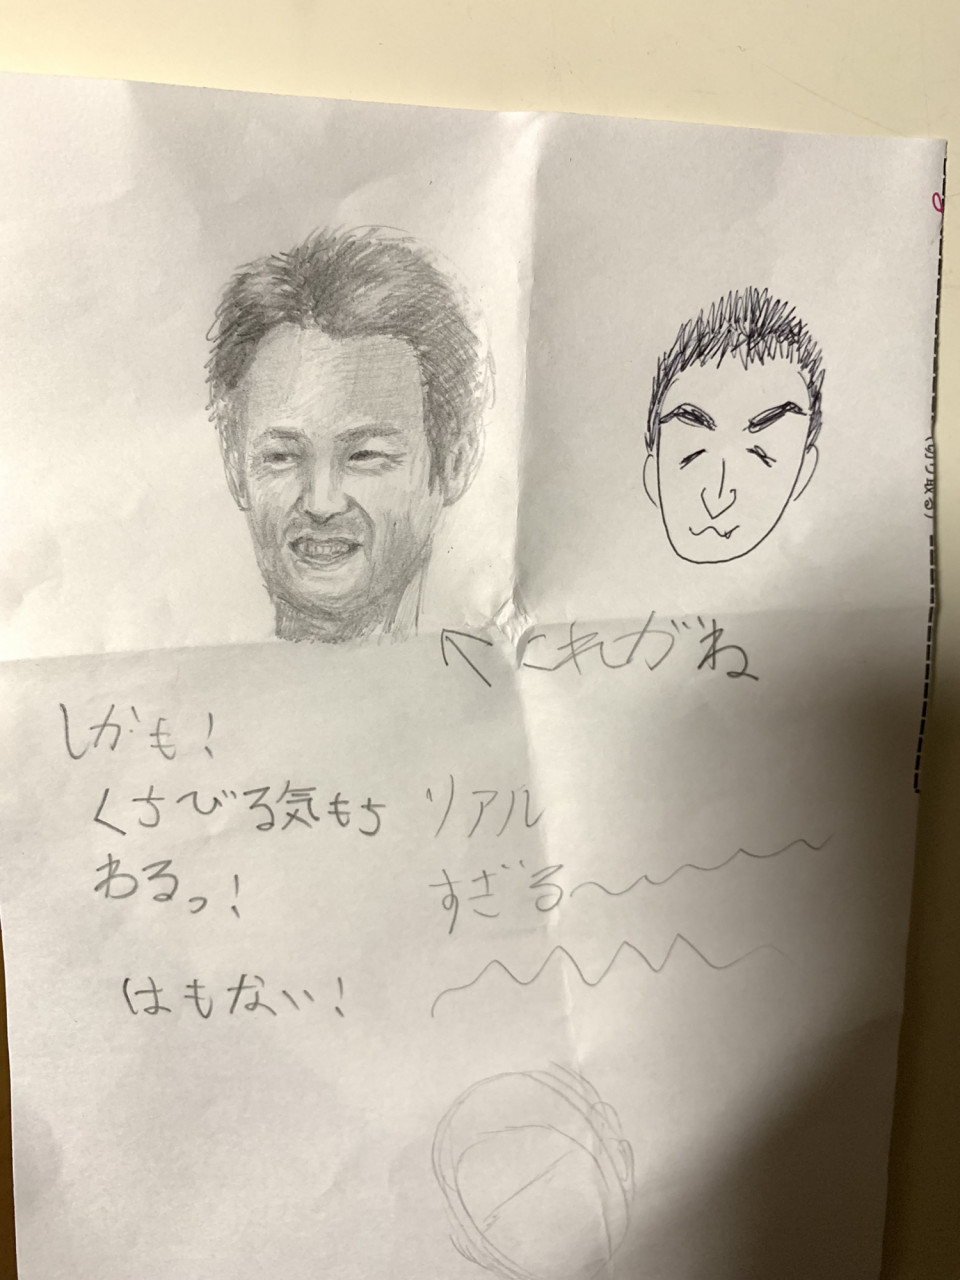 これがね
しかも!
くちびる気もち
わるっ!
はもない!
リアル
すぎる〜